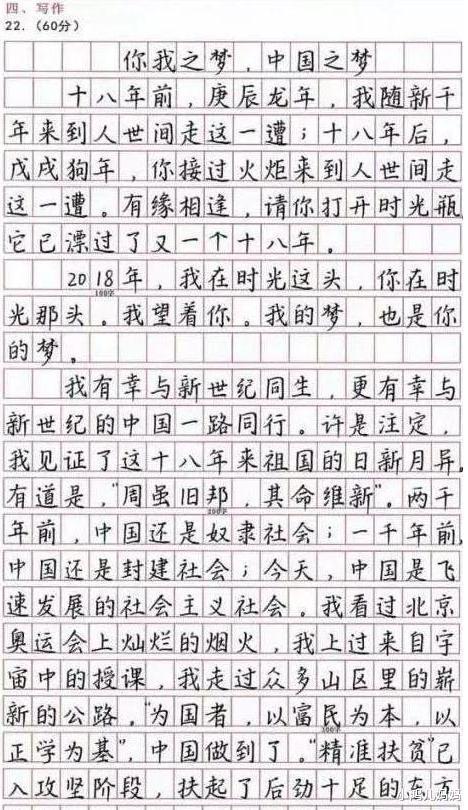 四、写作
22.（60分）
你我之梦，中国之梦
十八年前，庚辰龙年，我随新千
年来到人世间走这一遭；十八年后，
戊戌狗年，你接过火炬来到人世间走
这一遭。有缘相逢，请你打开时光瓶
它已漂过了又一个十八年。
2018年，我在时光这头，你在时
100字
光那头。我望着你。我的梦，也是你
的梦。
我有幸与新世纪同生，更有幸与
新世纪的中国一路同行。许是注定，
我见证了这十八年来祖国的日新月异。
有道是，“周虽旧邦，其命维新”。两千
200字
年前，中国还是奴隶社会；一千年前，
中国还是封建社会；今天，中国是飞
速发展的社会主义社会。我看过北京
奥运会上灿烂的烟火，我上过来自宇
宙中的授课，我走过众多山区里的崭
新的公路。“为国者，以富民为本，以
300字
正学为基”，中国做到了。“精准扶贫”已
入攻坚阶段，扶起了后劲十足的东方
小鸣儿妈妈